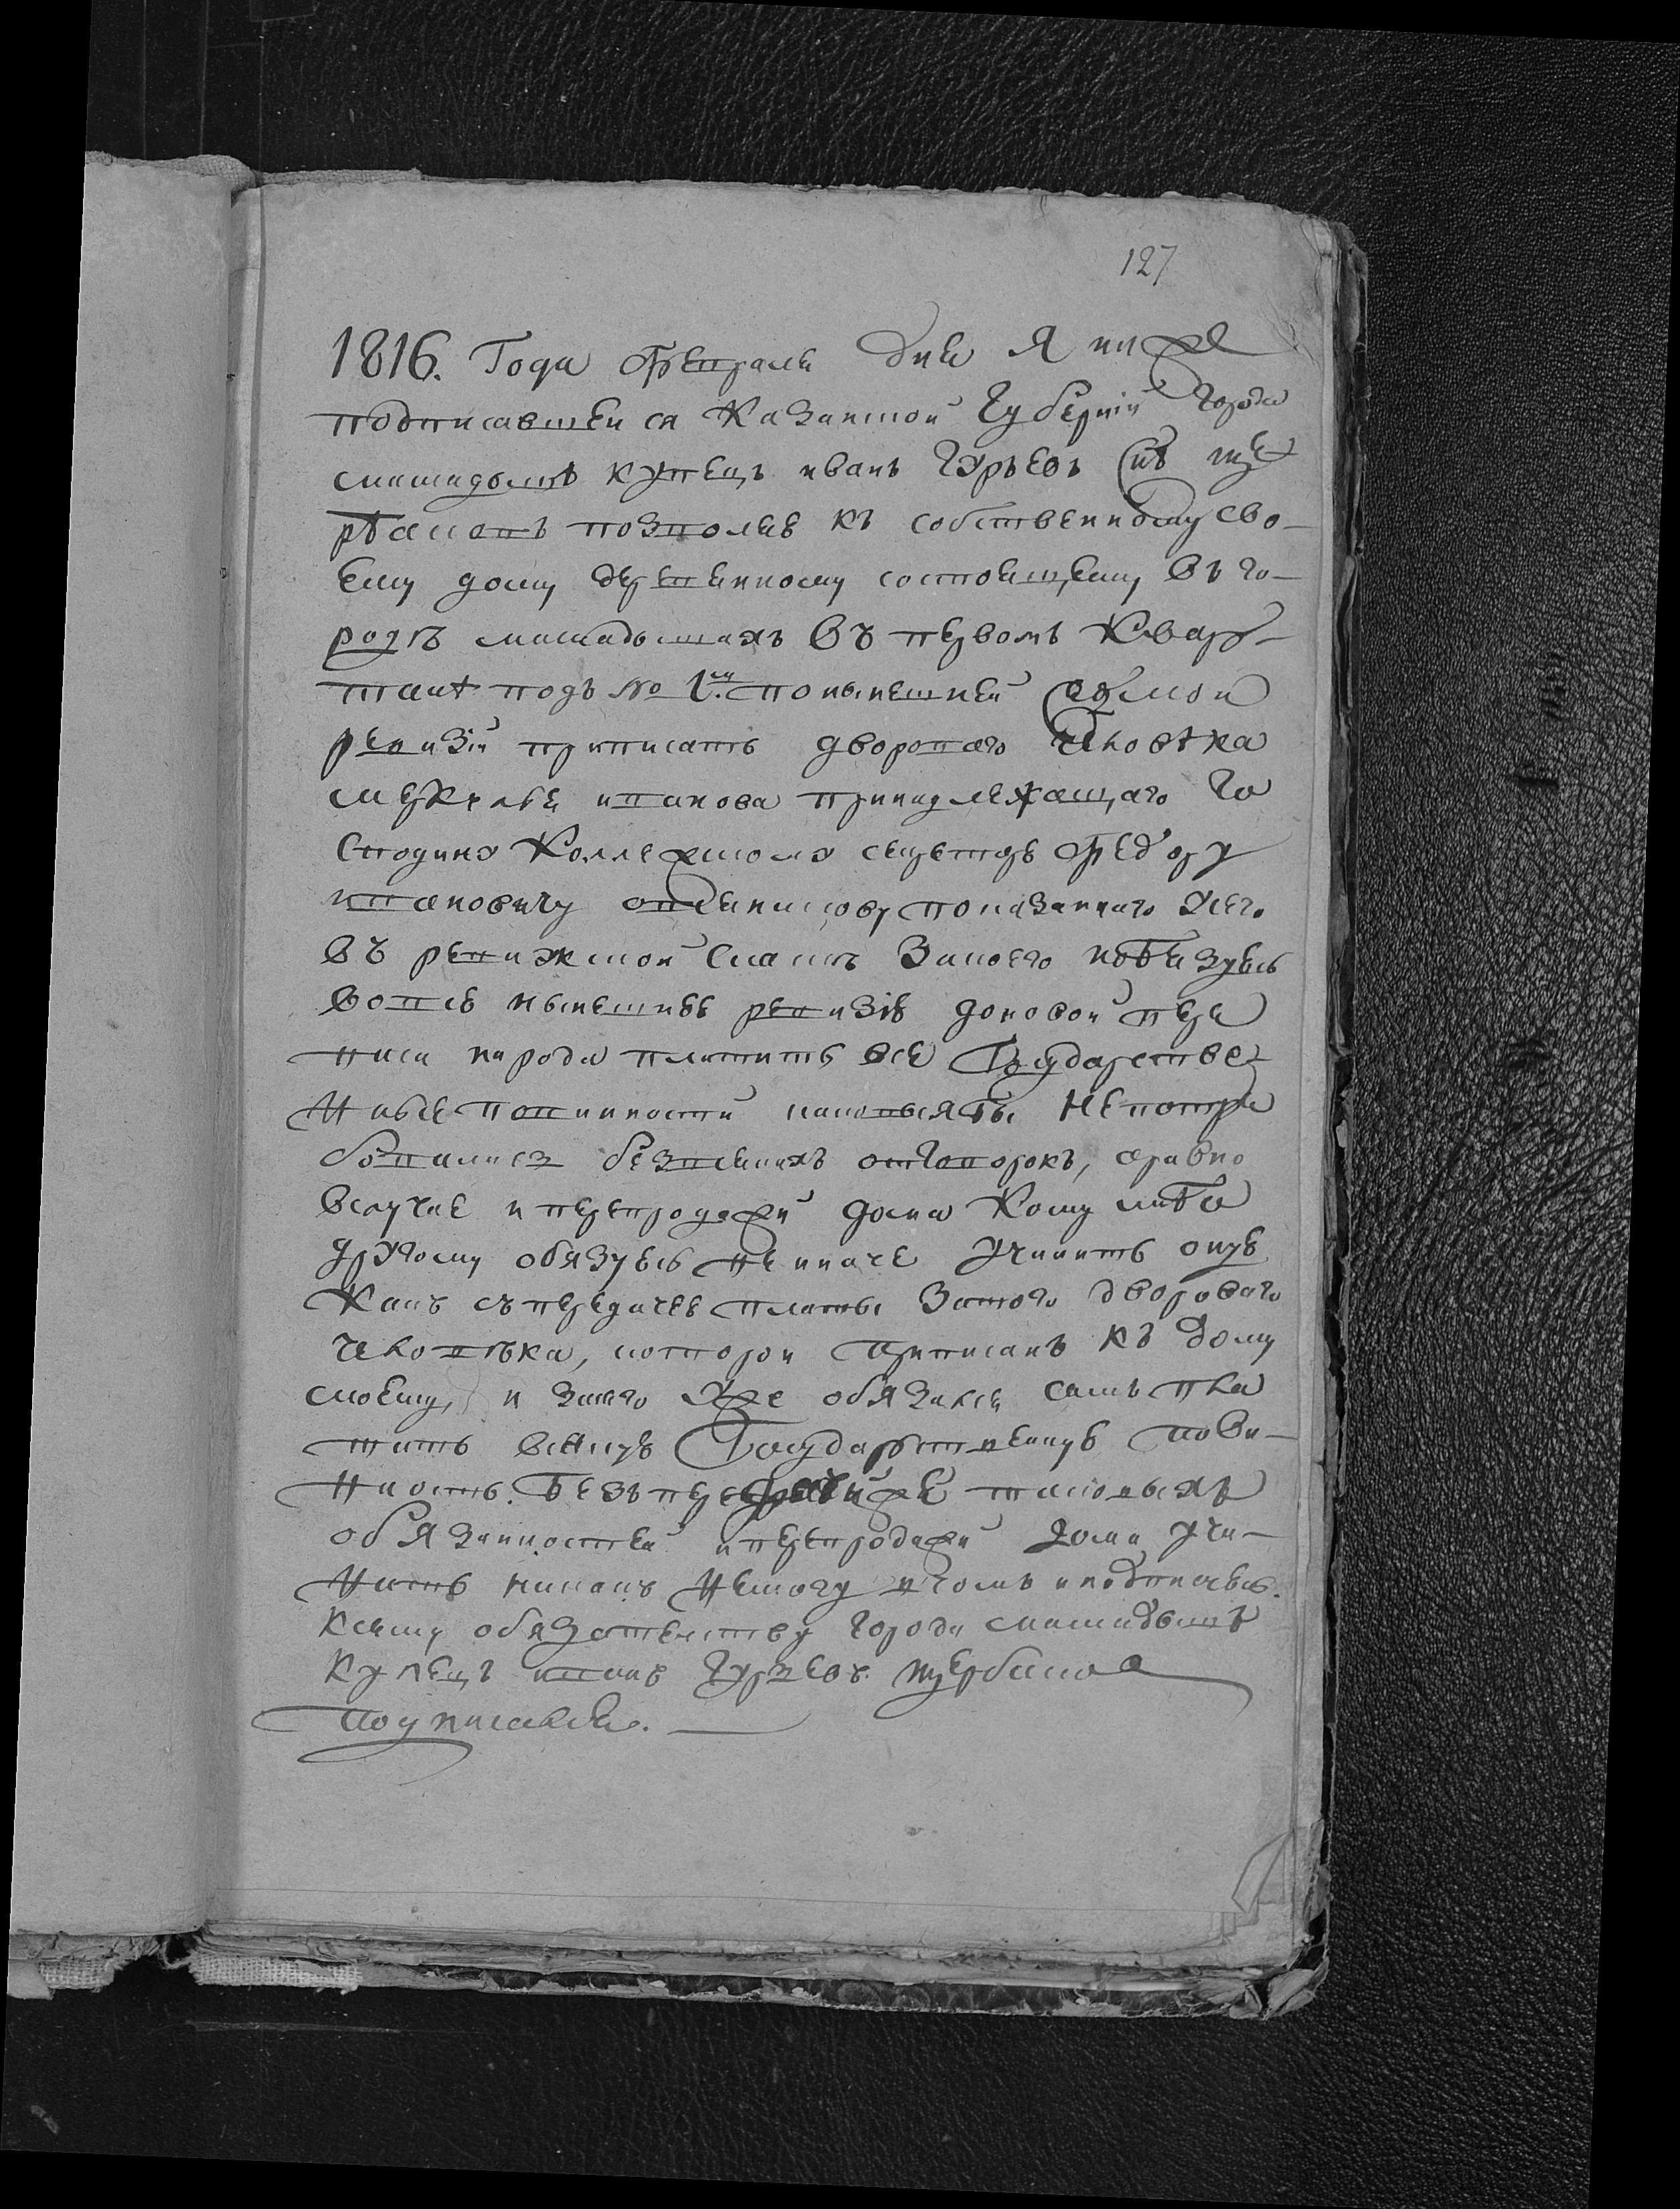 127
1816. Года февраля дня Я ниже
подписавшейся Казанской Губерніи города
мамадыша купецъ иванъ Гурьевъ снъ ще
рбаковъ позволяю къ собственному сво-
ему дому деревянному состоящему въ го-
родѣ мамадышахъ въ первомъ Квар-
талѣ подъ № 1м понынешней седмой
ревизіи приписать двороваго человѣка
иванова принадлежащаго Го
сподину Коллежскому Федору
ивановичу показаннаго унего
въ ревижской скаскѣ Занего иобязуюсь
вопсю нынешнюю ревизію доновой пере
писи народа платить все Государстве
нныя повинности каковыябъ непотре
бовались безъвсякихъ отговорокъ, аравно
вслучае и перепродажи дома Кому либо
другому обязуюсь неиначе учинить оную
Какъ съпередачею платы Затого двороваго
человѣка, которой приписанъ къ дому
моему, и занего уже обязанъ самъ пла
тить всякую Государственную пови-
нность. Безъ таковыхъ
обязанностей иперепродажи дома учи-
нить никакъ немогу вчомъ иподписуюсь.
Ксему обязательству города мамадыша
купецъ иванъ Гурьевъ щербаков
подписался.